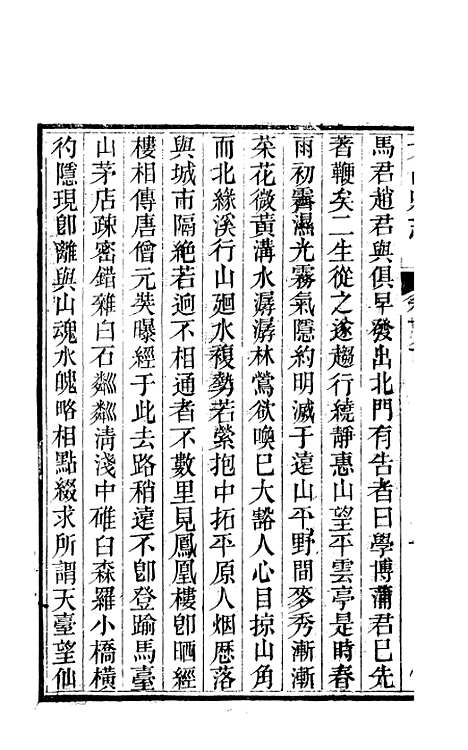 馬君趙君與俱早發出北門有告者曰學博蒲君已先
著鞭矣二生從之遂趨行繞靜惠山望平雲亭是時春
雨初霽濕光霧氣隱約明滅于遠山平野間麥秀漸漸
菜花微黃溝水潺潺林鶯欲喚已大豁人心目掠山角
而北緣溪行山廻水複勢若縈抱中拓平原人烟歷落
與城市隔絶若逈不相通者不數里見鳳凰樓卽晒經
樓相傳唐僧元奘曝經于此去路稍遠不卽登踰馬臺
山茅店疎密錯雜白石粼粼淸淺中碓臼森羅小橋橫
彴隱現卽離與山魂水魄略相點綴求所謂天臺望仙